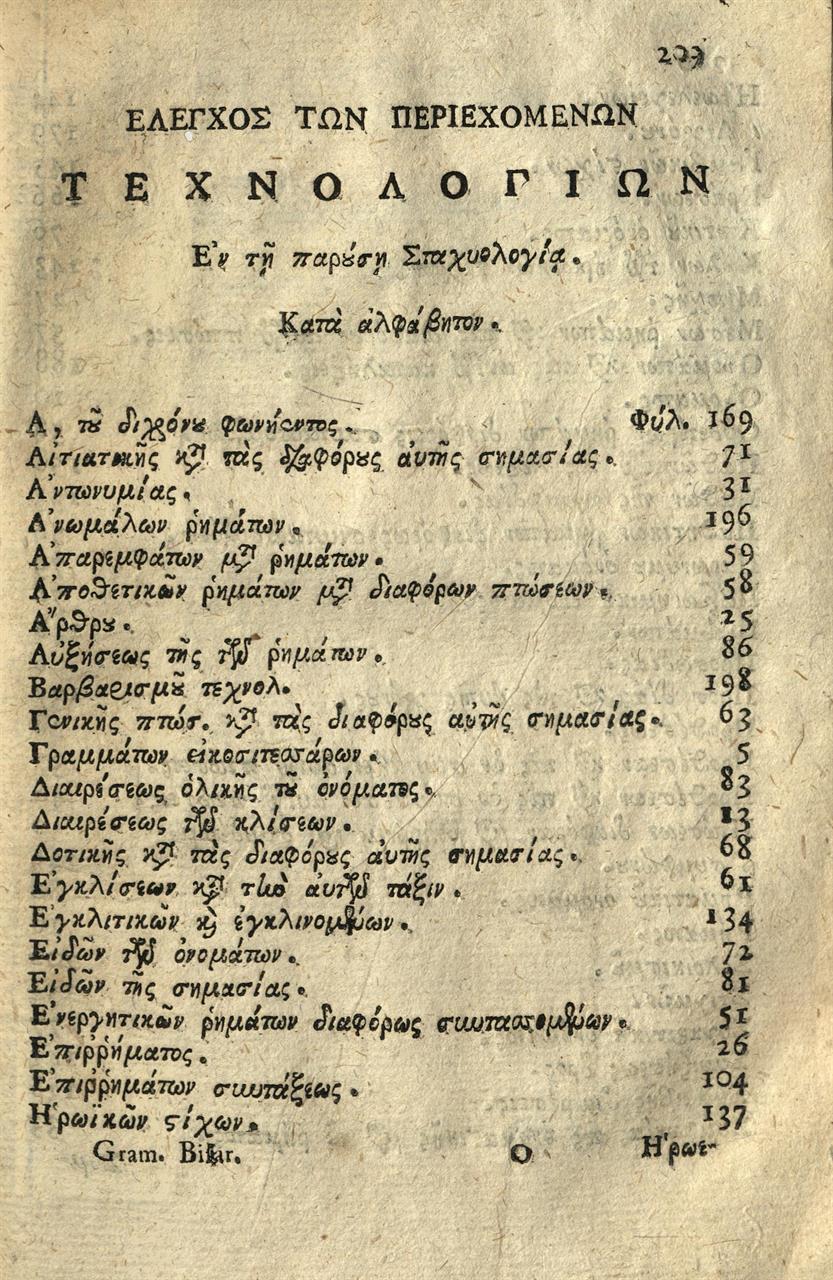 209
ΕΛΕΓΧΟΣ ΤΩΝ ΠΕΡΙΕΧΟΜΕΝΩΝ
ΤΕΧΝΟΛΟΓΙΩΝ
Ε'ν τῇ παρȣ́σῃ Σταχυολογίᾳ.
Κατὰ ἀλφάβητον.
Α, τȣ͂ διχρόνȣ φωνήεντος. Φύλ. 169
Αἰτιατικῆς κτ̀ τὰς διαφόρȣς ἀυτῆς σημασίας. 71
Α'ντωνυμίας. 31
Α'νωμάλων ῥημάτων. 196
Α'παρεμφάτων μτ̀ ῥημάτων. 59
Α'ποθετικῶν ῥημάτων μτ̀ διαφόρων πτώσεων. 58
Α"ρθρȣ. 25
Αὐξήσεως τῆς τῶν ῥημάτων. 86
Βαρβαρισμȣ͂ τεχνολ. 198
Γενικῆς πτώσ. κτ̀ τὰς διαφόρȣς αὐτῆς σημασίας. 63
Γραμμάτων εἰκοσιτεσσάρων. 5
Διαιρέσεως ὁλικῆς τȣ͂ ὀνόματος. 83
Διαιρέσεως τῶν κλίσεων. 13
Δοτικῆς κτ̀ τὰς διαφόρȣς ἀυτῆς σημασίας. 68
Ε'γκλίσεων κτ̀ τὴν ἀυτῶν τάξιν. 61
Ε'γκλιτικῶν ϗ̀ ἐγκλινομένων. 134
Εἰδῶν τῶν ὀνομάτων. 72
Εἰδῶν τῆς σημασίας. 81
Ε'νεργητικῶν ῥημάτων διαφόρως συντασσομένων. 51
Ε'πιῤῥήματος. 26
Ε'πιῤῥημάτων συντάξεως. 104
Η'ρωϊκῶν ϛίχων. 137
Gram. Bissar. O Η'ρωε-